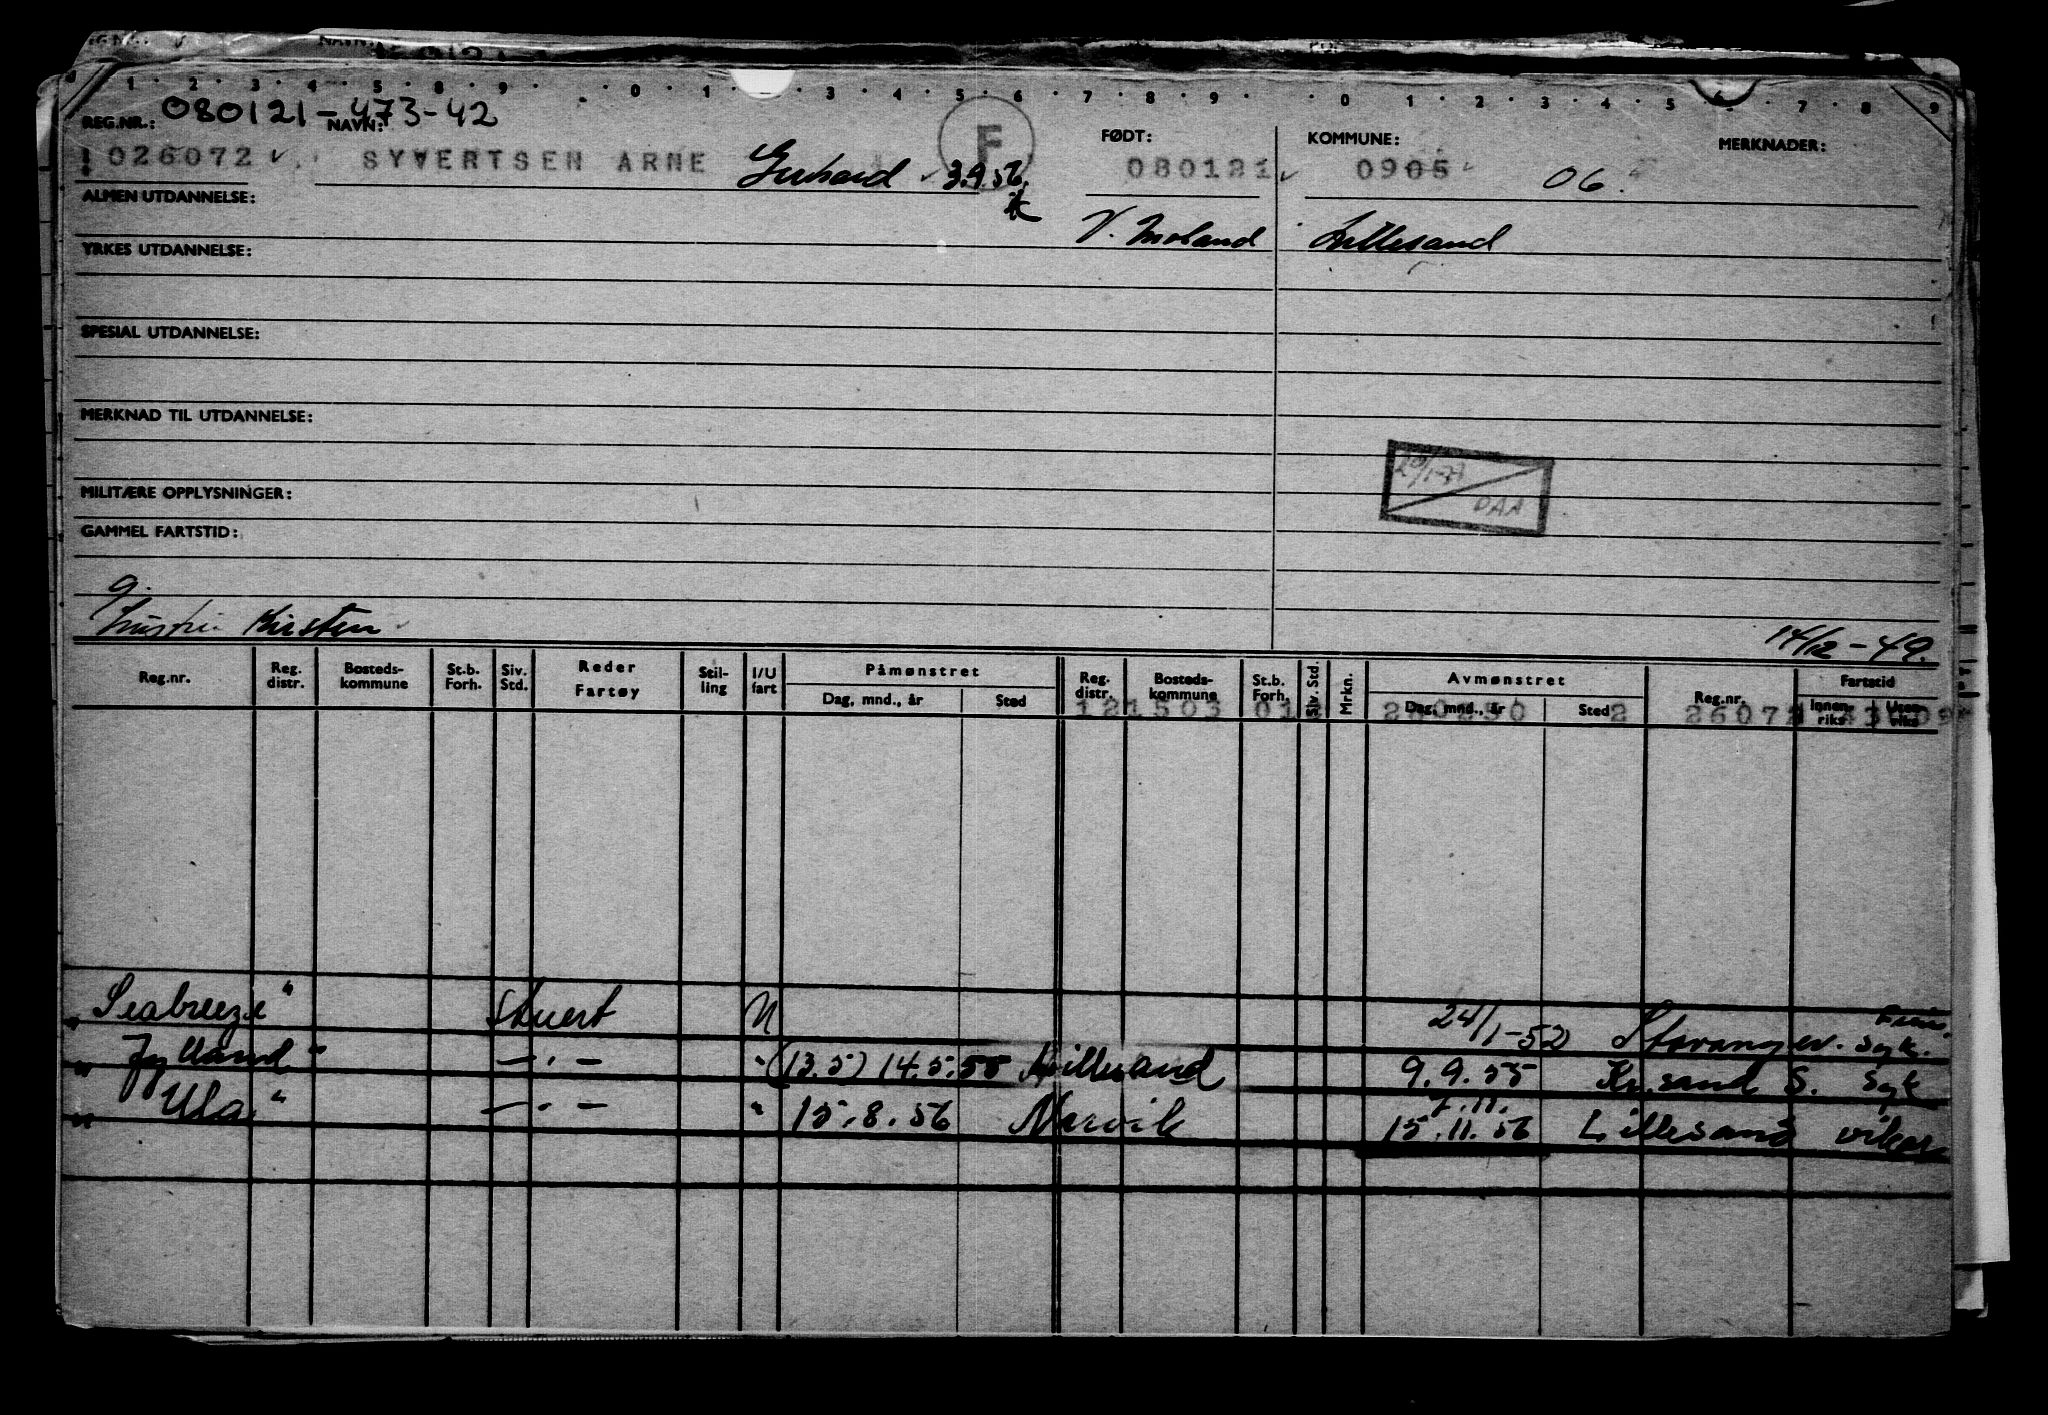 1 2 3 4 5 6 7 8 9 0 1 3 4 5 6 7 8 9 0 1 2 3 4 5 6 7 8 9
080121-473-42
REG.NR.: NAVN: FØDT: KOMMUNE: MERKNADER:
026072 SYVERTSEN ARNE Gerhard 3.9.56 F 080121 0905 06.
ALMEN UTDANNELSE:
V. Moland Lillesand
YRKES UTDANNELSE:
SPESIAL UTDANNELSE:
MERKNAD TIL UTDANNELSE:
20/1-71
DAA
MILITÆRE OPPLYSNINGER:
GAMMEL FARTSTID:
g.
hustru Kirsten
14/12-49.
Reg.nr. Reg. distr. Bosteds-kommune St.b. Forh. Siv. Std. Reder Fartøy Stil-ling I/U fart Påmønstret Dag, mnd., år Sted Reg. distr. Bosteds-kommune St.b. Forh. Siv. Std. Mrkn. Avmønstret Dag, mnd., år Sted Reg.nr. Fartstid Innen-riks Uten-riks
121503 01 2 26072
Seabreeze" Stuert U 24/1-52 Stavanger. syk.
"Jylland" -.- " (13.5) 14.5.55 Lillesand 9.9.55 Kr.sand S. syk
"Ula" -.- " 15.8.56 Narvik 15.11.56 Lillesand vikar